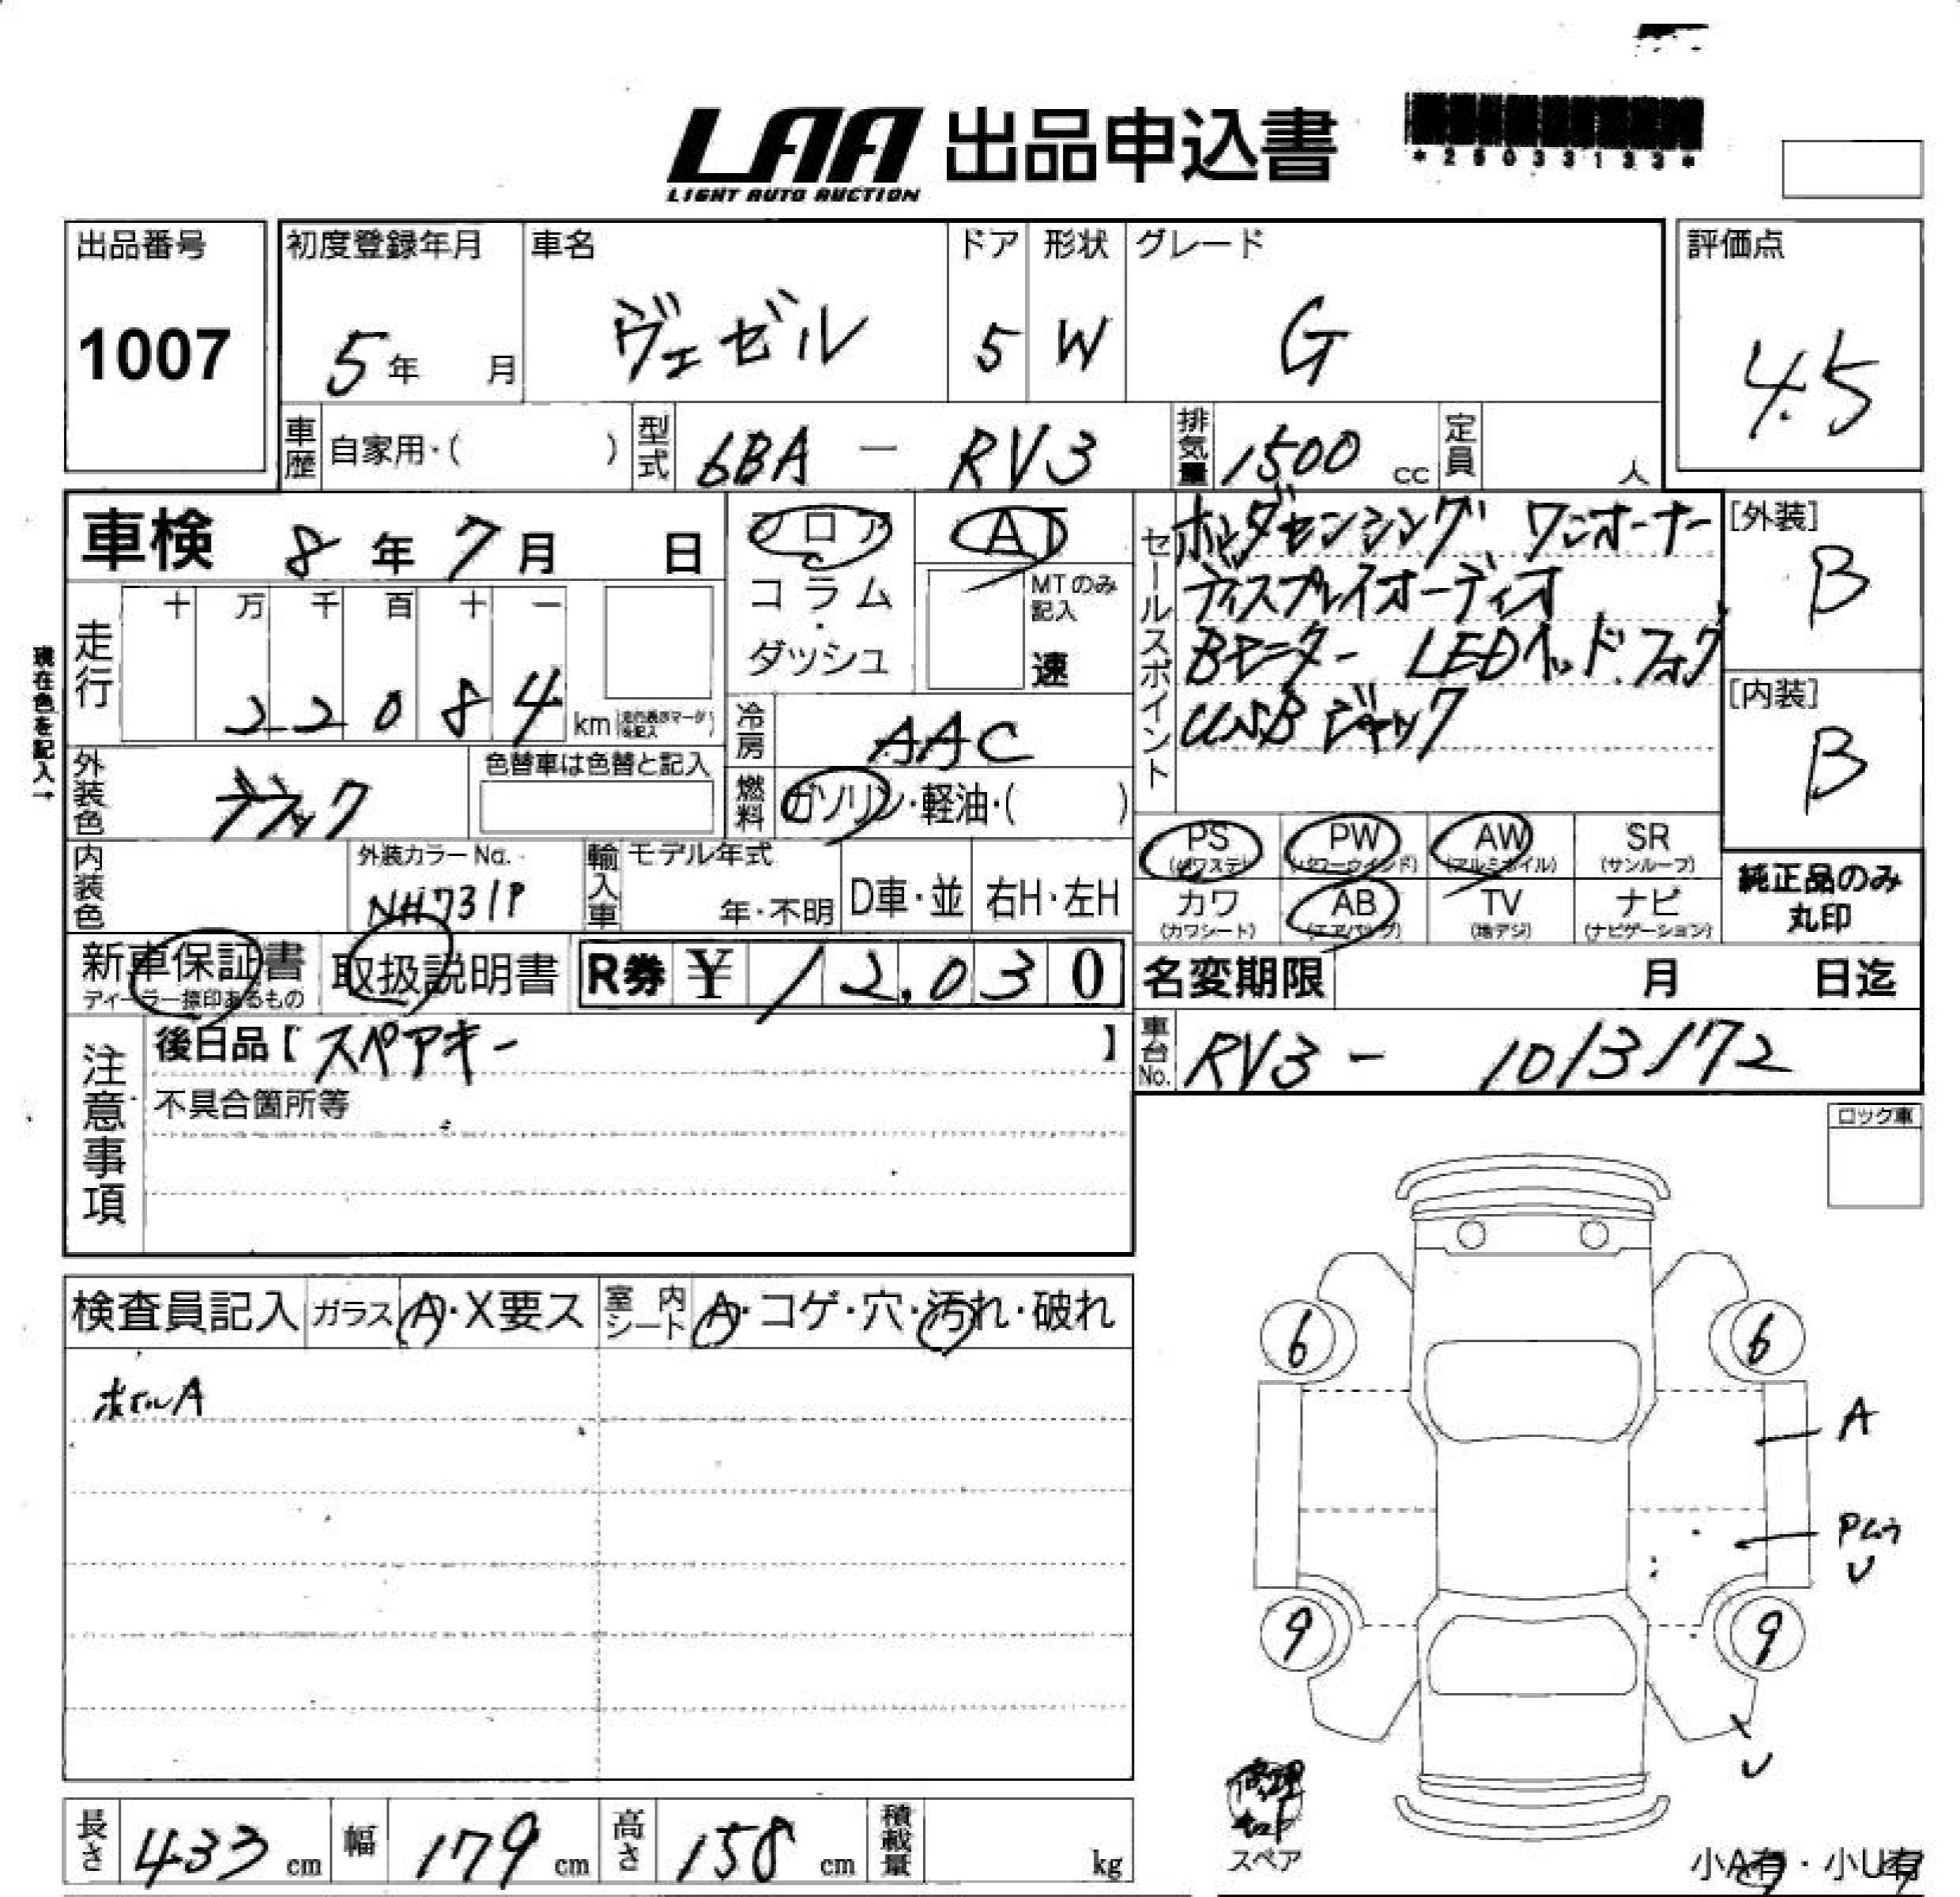 LAA 出品申込書
LIGHT AUTO AUCTION
出品番号
1007
初度登録年月
5年 月
車名
ヴェゼル
ドア
5
形状
W
グレード
G
評価点
4.5
車歴 自家用・( )
型式 6BA - RV3
排気量 1500 cc
定員 人
車検 8年 7月 日
フロア
コラム
・
ダッシュ
AT
MTのみ記入
速
セールスポイント
ホンダセンシング ワンオーナー
ディスプレイオーディオ
Bモニター LEDヘッド.フォグ
USBジャック
[外装]
B
[内装]
B
現在色を記入→
走行
十 万 千 百 十 一
2 2 0 8 4 km
冷房 AAC
外装色 ブラック
色替車は色替と記入
燃料 ガソリン・軽油・( )
内装色
外装カラーNo.
NH731P
輸入車
モデル年式
年・不明
D車・並
右H・左H
PS (パワステ)
PW (パワーウインド)
AW (アルミホイル)
SR (サンルーフ)
カワ (カワシート)
AB (エアバッグ)
TV (地デジ)
ナビ (ナビゲーション)
純正品のみ
丸印
新車保証書
ディーラー捺印あるもの
取扱説明書
R券 ¥ 12,030
名変期限 月 日迄
注意事項
後日品【 スペアキー 】
不具合箇所等
車台No. RV3 - 1013172
ロック車
検査員記入
ガラス A・X要ス
室内シート A・コゲ・穴・汚れ・破れ
ホイルA
6
6
A
Pムラ
U
9
9
U
修理キット
スペア
小A有・小U有
長さ 433 cm
幅 179 cm
高さ 158 cm
積載量 kg